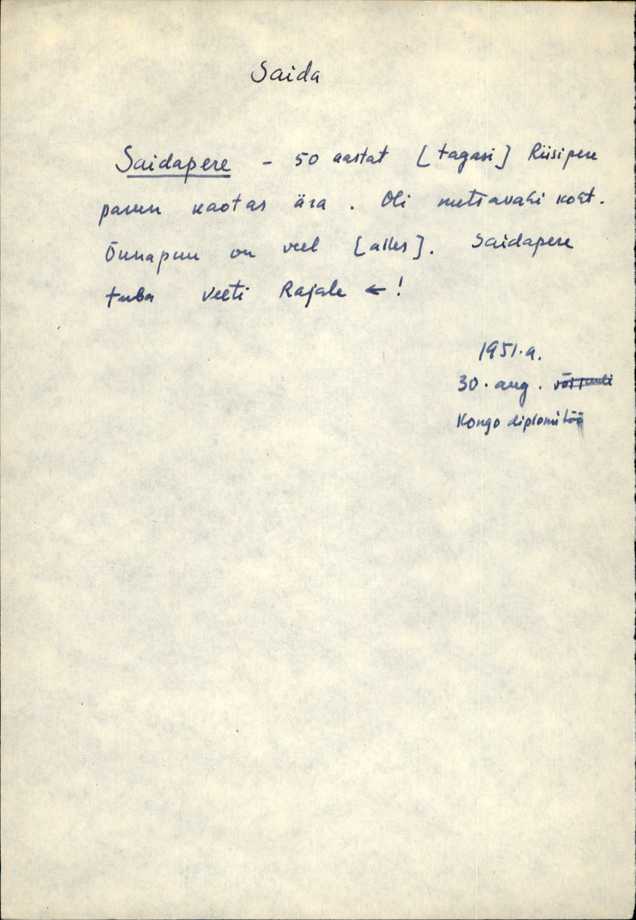 Saida
Saidapere - 50 aastat [tagasi] Riisipere
parun kaotas ära. Oli metsavahi koht.
Õunapuu on veel [alles]. Saidapere
tuba veeti Rajale ← !
1951.a.
30. aug.
Kongo diplomitöö